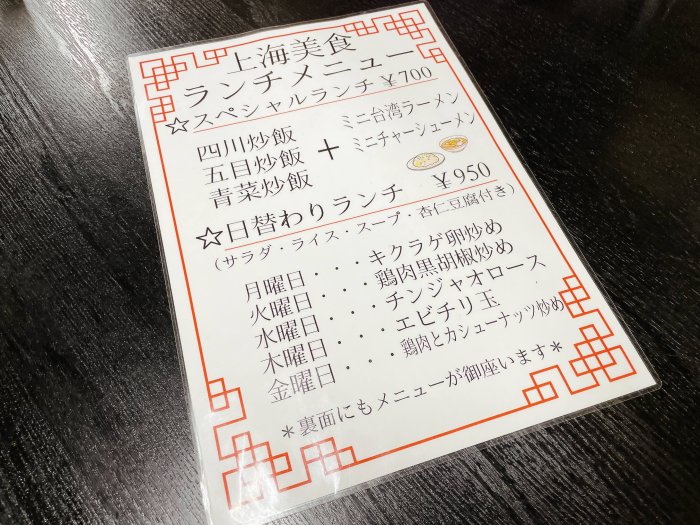 上海美食
ランチメニュー
☆スペシャルランチ ¥700
四川炒飯
五目炒飯
青菜炒飯
+
ミニ台湾ラーメン
ミニチャーシューメン
☆日替わりランチ ¥950
(サラダ・ライス・スープ・杏仁豆腐付き)
月曜日・・・キクラゲ卵炒め
火曜日・・・鶏肉黒胡椒炒め
水曜日・・・チンジャオロース
木曜日・・・エビチリ玉
金曜日・・・鶏肉とカシューナッツ炒め
＊裏面にもメニューが御座います＊